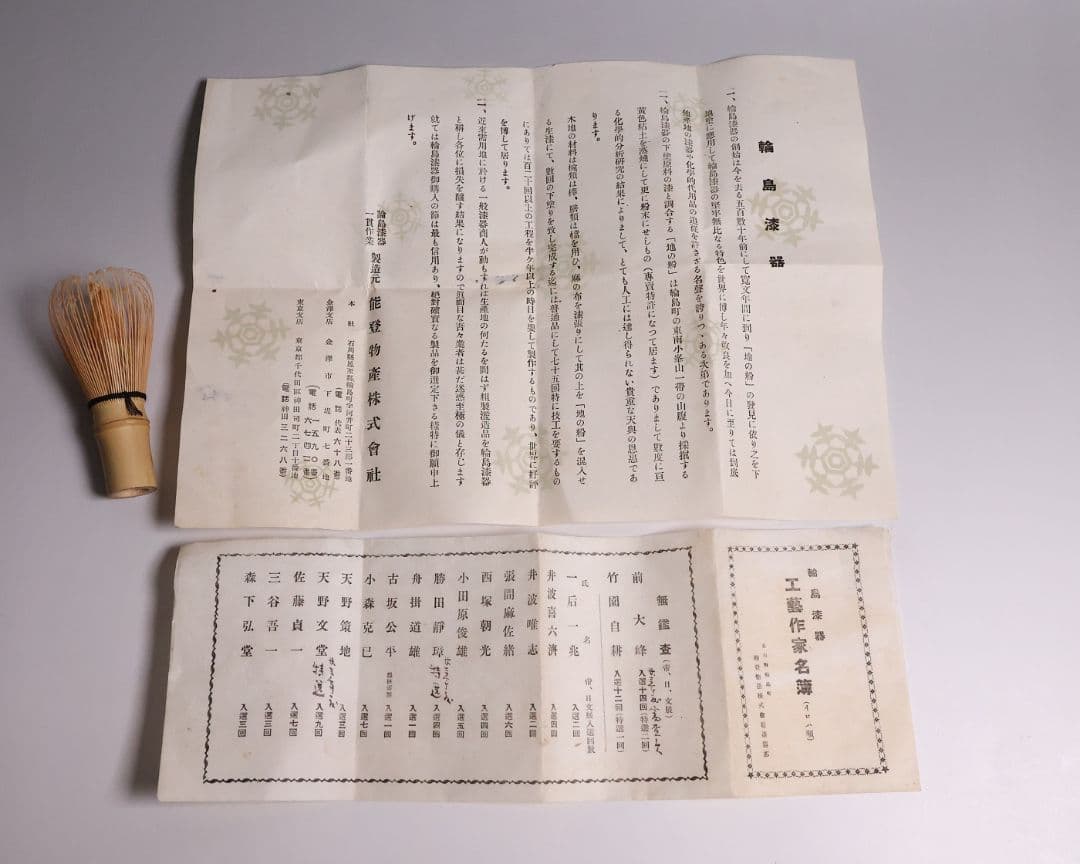 輪島漆器
一、輪島漆器の創始は今を去る五百数十年前にして寛文年間に到り「地の粉」の發見に依り之を下
地塗に應用して輪島漆器の堅牢無比なる特色を世界に博し年々改良を加へ今日に至りては到底
他産地の漆器や化學的代用品の追從を許さざる名聲を誇りつゝある次第であります。
一、輪島漆器の下塗原料の漆と調合する「地の粉」は輪島町の東南小峯山一帶の山腹より採掘する
黄色粘土を蒸燒にして更に粉末にせしもの(專賣特許になつて居ます)でありまして數度に亘
る化學的分析研究の結果によりまして、とても人工には達し得られない貴重な天與の恩惠であ
ります。
木地の材料は椀類は欅、膳類は檔を用ひ、麻の布を漆張りにして其の上を「地の粉」を混入せ
る生漆にて、數回の下塗りを致し完成する迄には普通品にして七十五回特に技工を要するもの
にありては百二十回以上の工程を半ケ年以上の時日を要して製作するものであり、世界に好評
を博して居ります。
一、近來需用地に於ける一般漆器商人が動もすれば生產地の何たるを問はず粗製濫造品を輪島漆器
と稱し各位に損失を釀す結果になりますので眞面目な吾々業者は甚だ迷惑至極の儀と存じます
就ては輪島漆器御購入の節は最も信用あり、絕對確實なる製品を御選定下さる樣特に御願申上
げます。
輪島漆器
一貫作業
製造元 能登物產株式會社
本社 石川縣鳳至郡輪島町字河井町二十三部一番地
(電話代表六十八番)
金澤支店 金澤市下堤町七番地
東京支店 東京都千代田區神田司町二丁目十番地
(電話神田三二六八番)
輪島漆器
工藝作家名簿
(イロハ順)
無鑑査(帝、日、文展)
前大峰 入選十四回(特選二回)
竹園自耕 入選十二回(特選一回)
氏名 帝、日文展入選回數
一后一兆 入選二回
井波喜六濟 入選四回
井波唯志 入選二回
張間麻佐緒 入選六回
西塚朝光 入選四回
小田原俊雄 入選五回
勝田靜璋 特選 入選四回
舟掛道雄 入選一回
古坂公平 入選一回
小森克巳 入選七回
天野策地 入選三回
天野文堂 特選 入選九回
佐藤貞一 入選七回
三谷吾一 入選三回
森下弘堂 入選三回